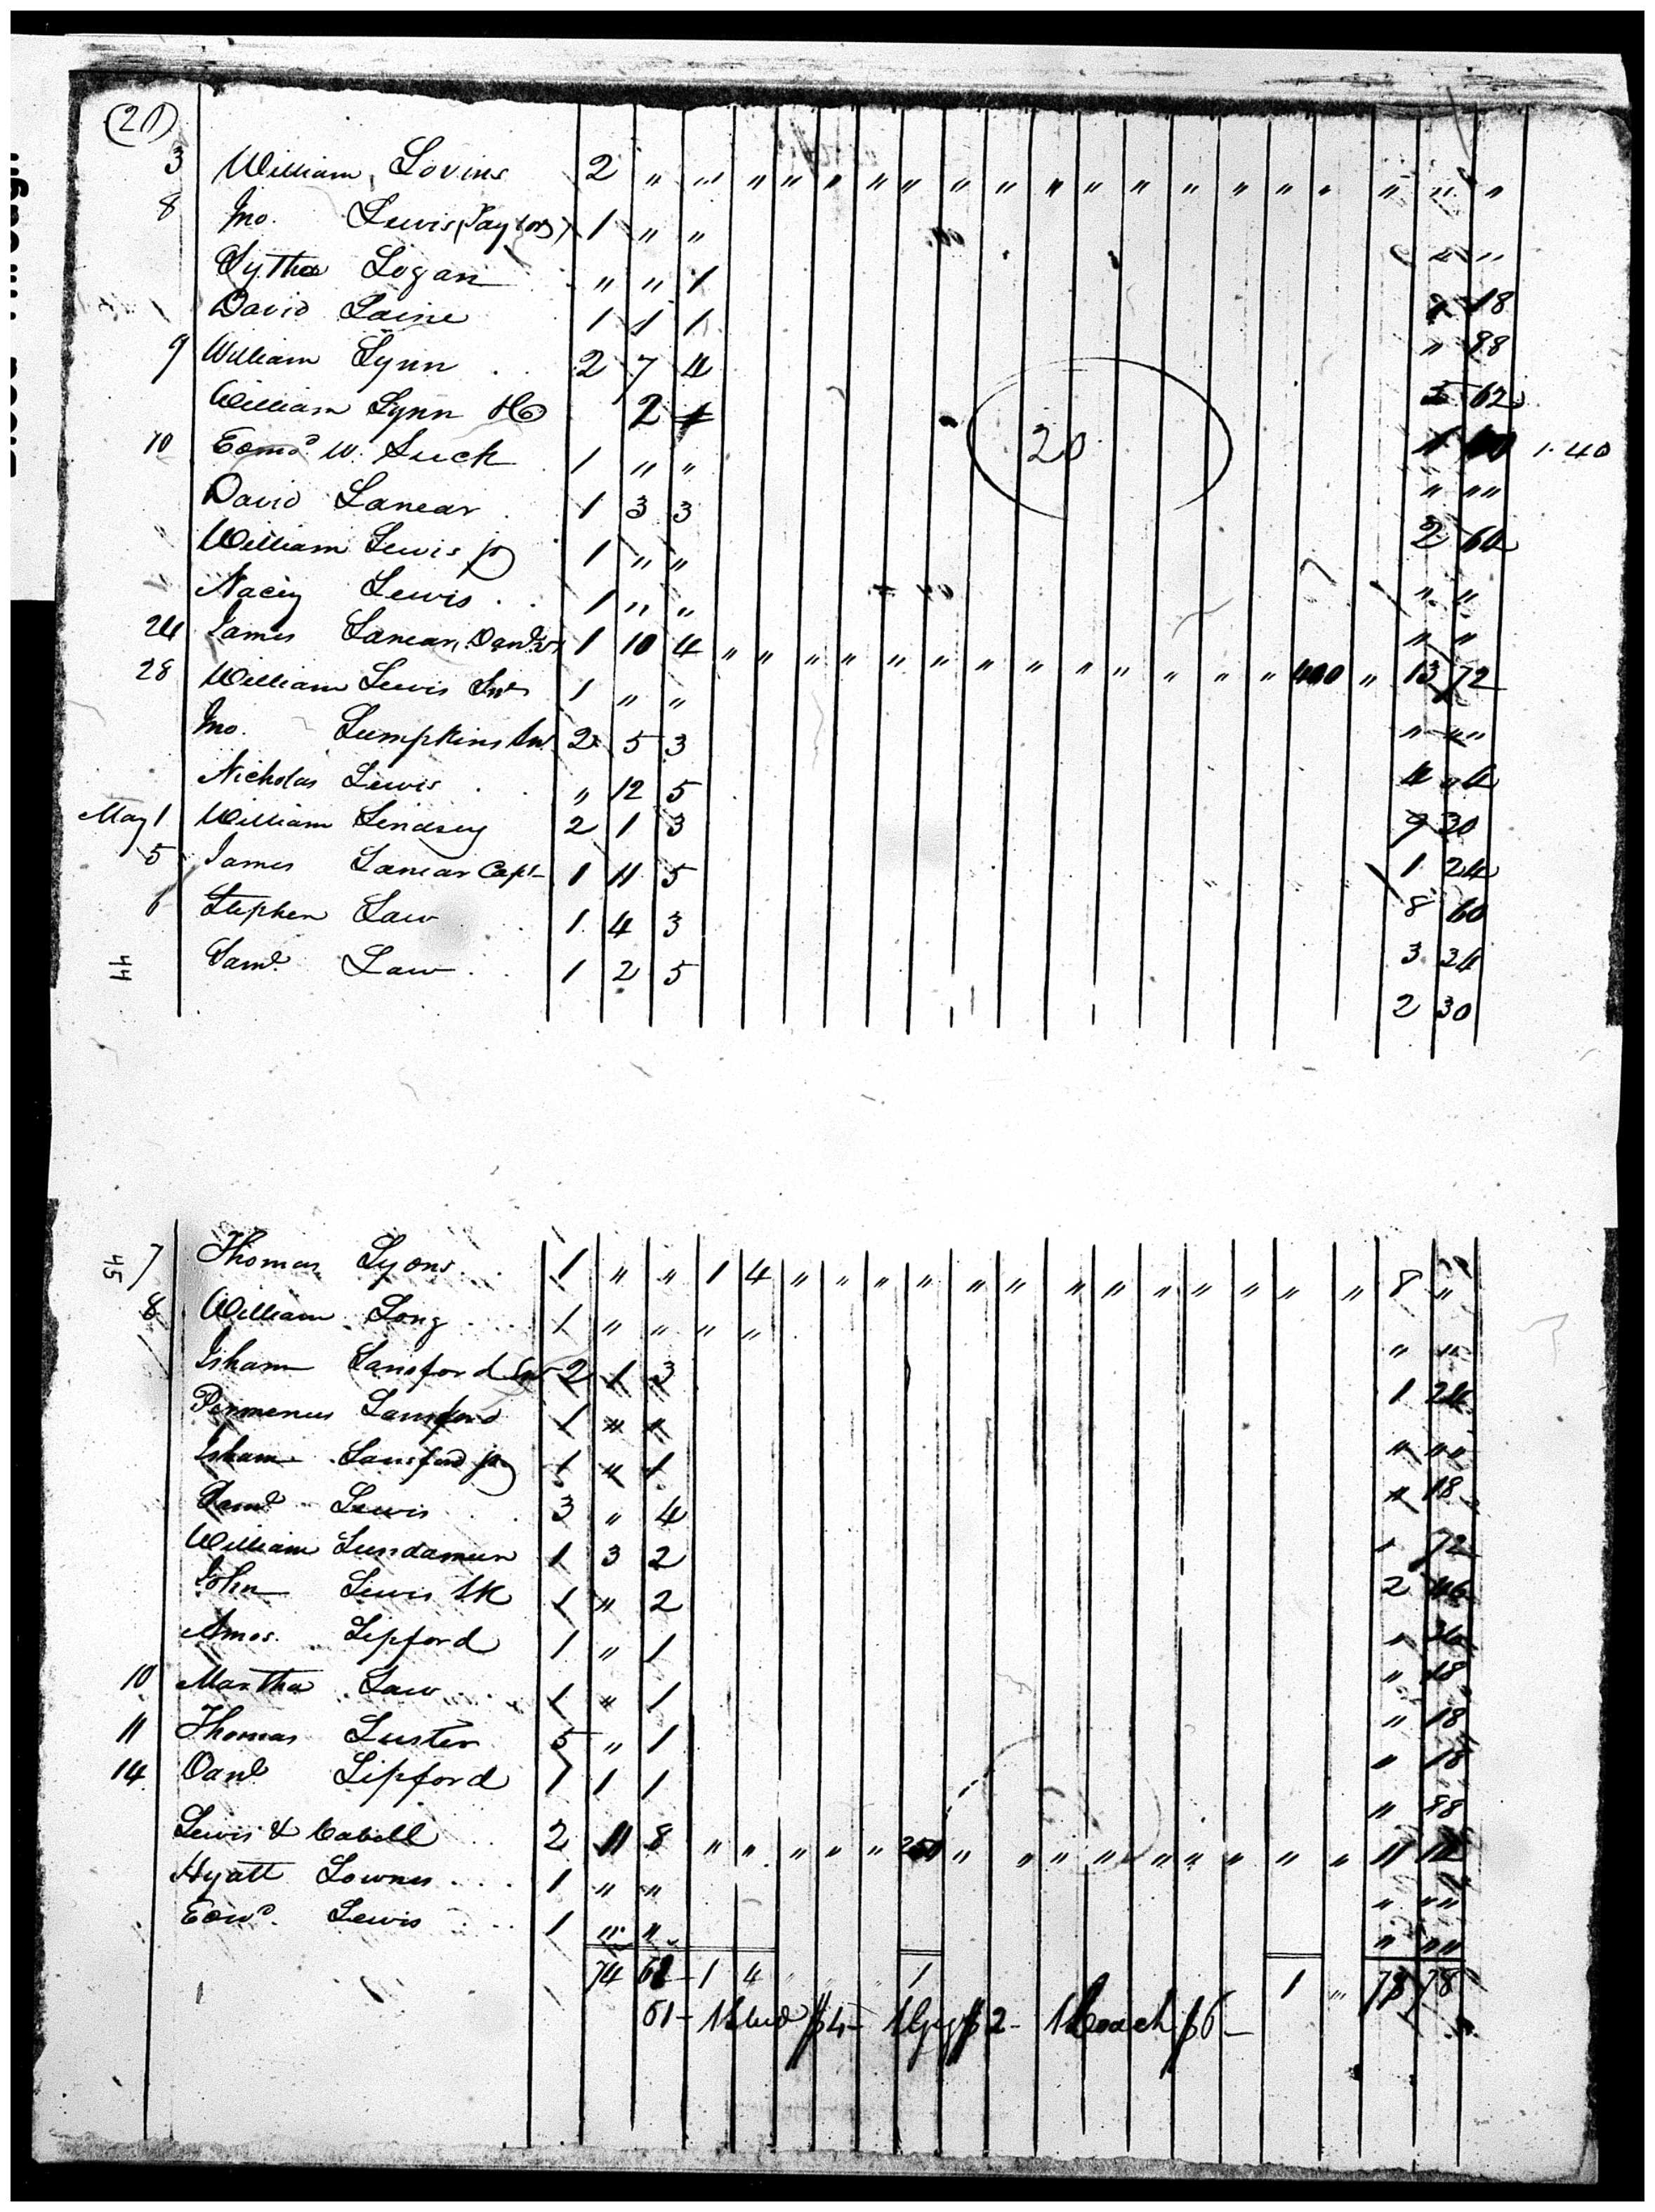 (21)
3 William Lovins 2 " " " " " " " " " " " " " " " " " " "
8 Jno. Lewis (Taylor) 1 " " " "
Lytha Logan " " 1 " 18
David Laine 1 1 1 " 88
9 William Lynn 2 7 4 5 62
William Lynn 2 1 1.40
20
10 Edmd. W. Luck 1 " " " " "
David Lanear 1 3 3 2 60
William Lewis jr 1 " " " "
Nacey Lewis 1 " " " "
24 James Lanear, Danl. 1 10 4 " " " " " " " " " " " " " 400 " 13 72
28 William Lewis Snr 1 " " " " "
Jno. Lumpkins Snr 2 5 3 4 " 4
Nicholas Lewis " 12 5 9 30
May 1 William Lindsey 2 1 3 1 24
5 James Lanear Capt 1 11 5 8 60
6 Stephen Law 1 4 3 3 34
44 Saml. Law 1 2 5 2 30
45 7 Thomas Lyons 1 " " 1 4 " " " " " " " " " " " " " 8 "
8 William Long 1 " " " " " "
Isham Lansford Snr 2 1 3 1 24
Permenus Lansford 1 " " " " "
Isham Lansford jr 1 " 1 " 18
Saml. Lewis 3 " 4 " 72
William Lundamun 1 3 2 2 46
John Lewis S.K 1 " 2 " 36
Amos. Lipford 1 " 1 " 18
10 Martha Law 1 " 1 " 18
11 Thomas Luster 5 " 1 " 18
14 Danl. Lipford 1 1 1 " 88
Lewis & Cabell 2 11 8 " " " " " 250 " " " " " " " " " 11 12
Hyatt Lownes 1 " " " " "
Edwd. Lewis 1 " " " " "
74 62 - 1 4 1 1 " 78 78
61 - 1 Stud $4 - 1 Gig $2 - 1 Coach $6 -